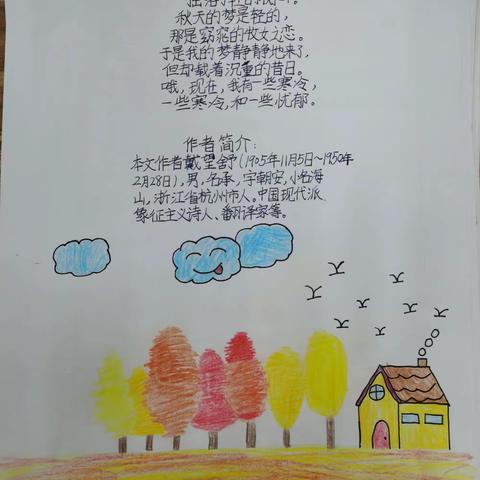 秋天的梦是轻的，
那是窈窕的牧女之恋。
于是我的梦静静地来了，
但却载着沉重的昔日。
哦，现在，我有一些寒冷，
一些寒冷，和一些忧郁。
作者简介：
本文作者戴望舒（1905年11月5日～1950年
2月28日），男，名承，字朝安，小名海
山，浙江省杭州市人。中国现代派
象征主义诗人、翻译家等。